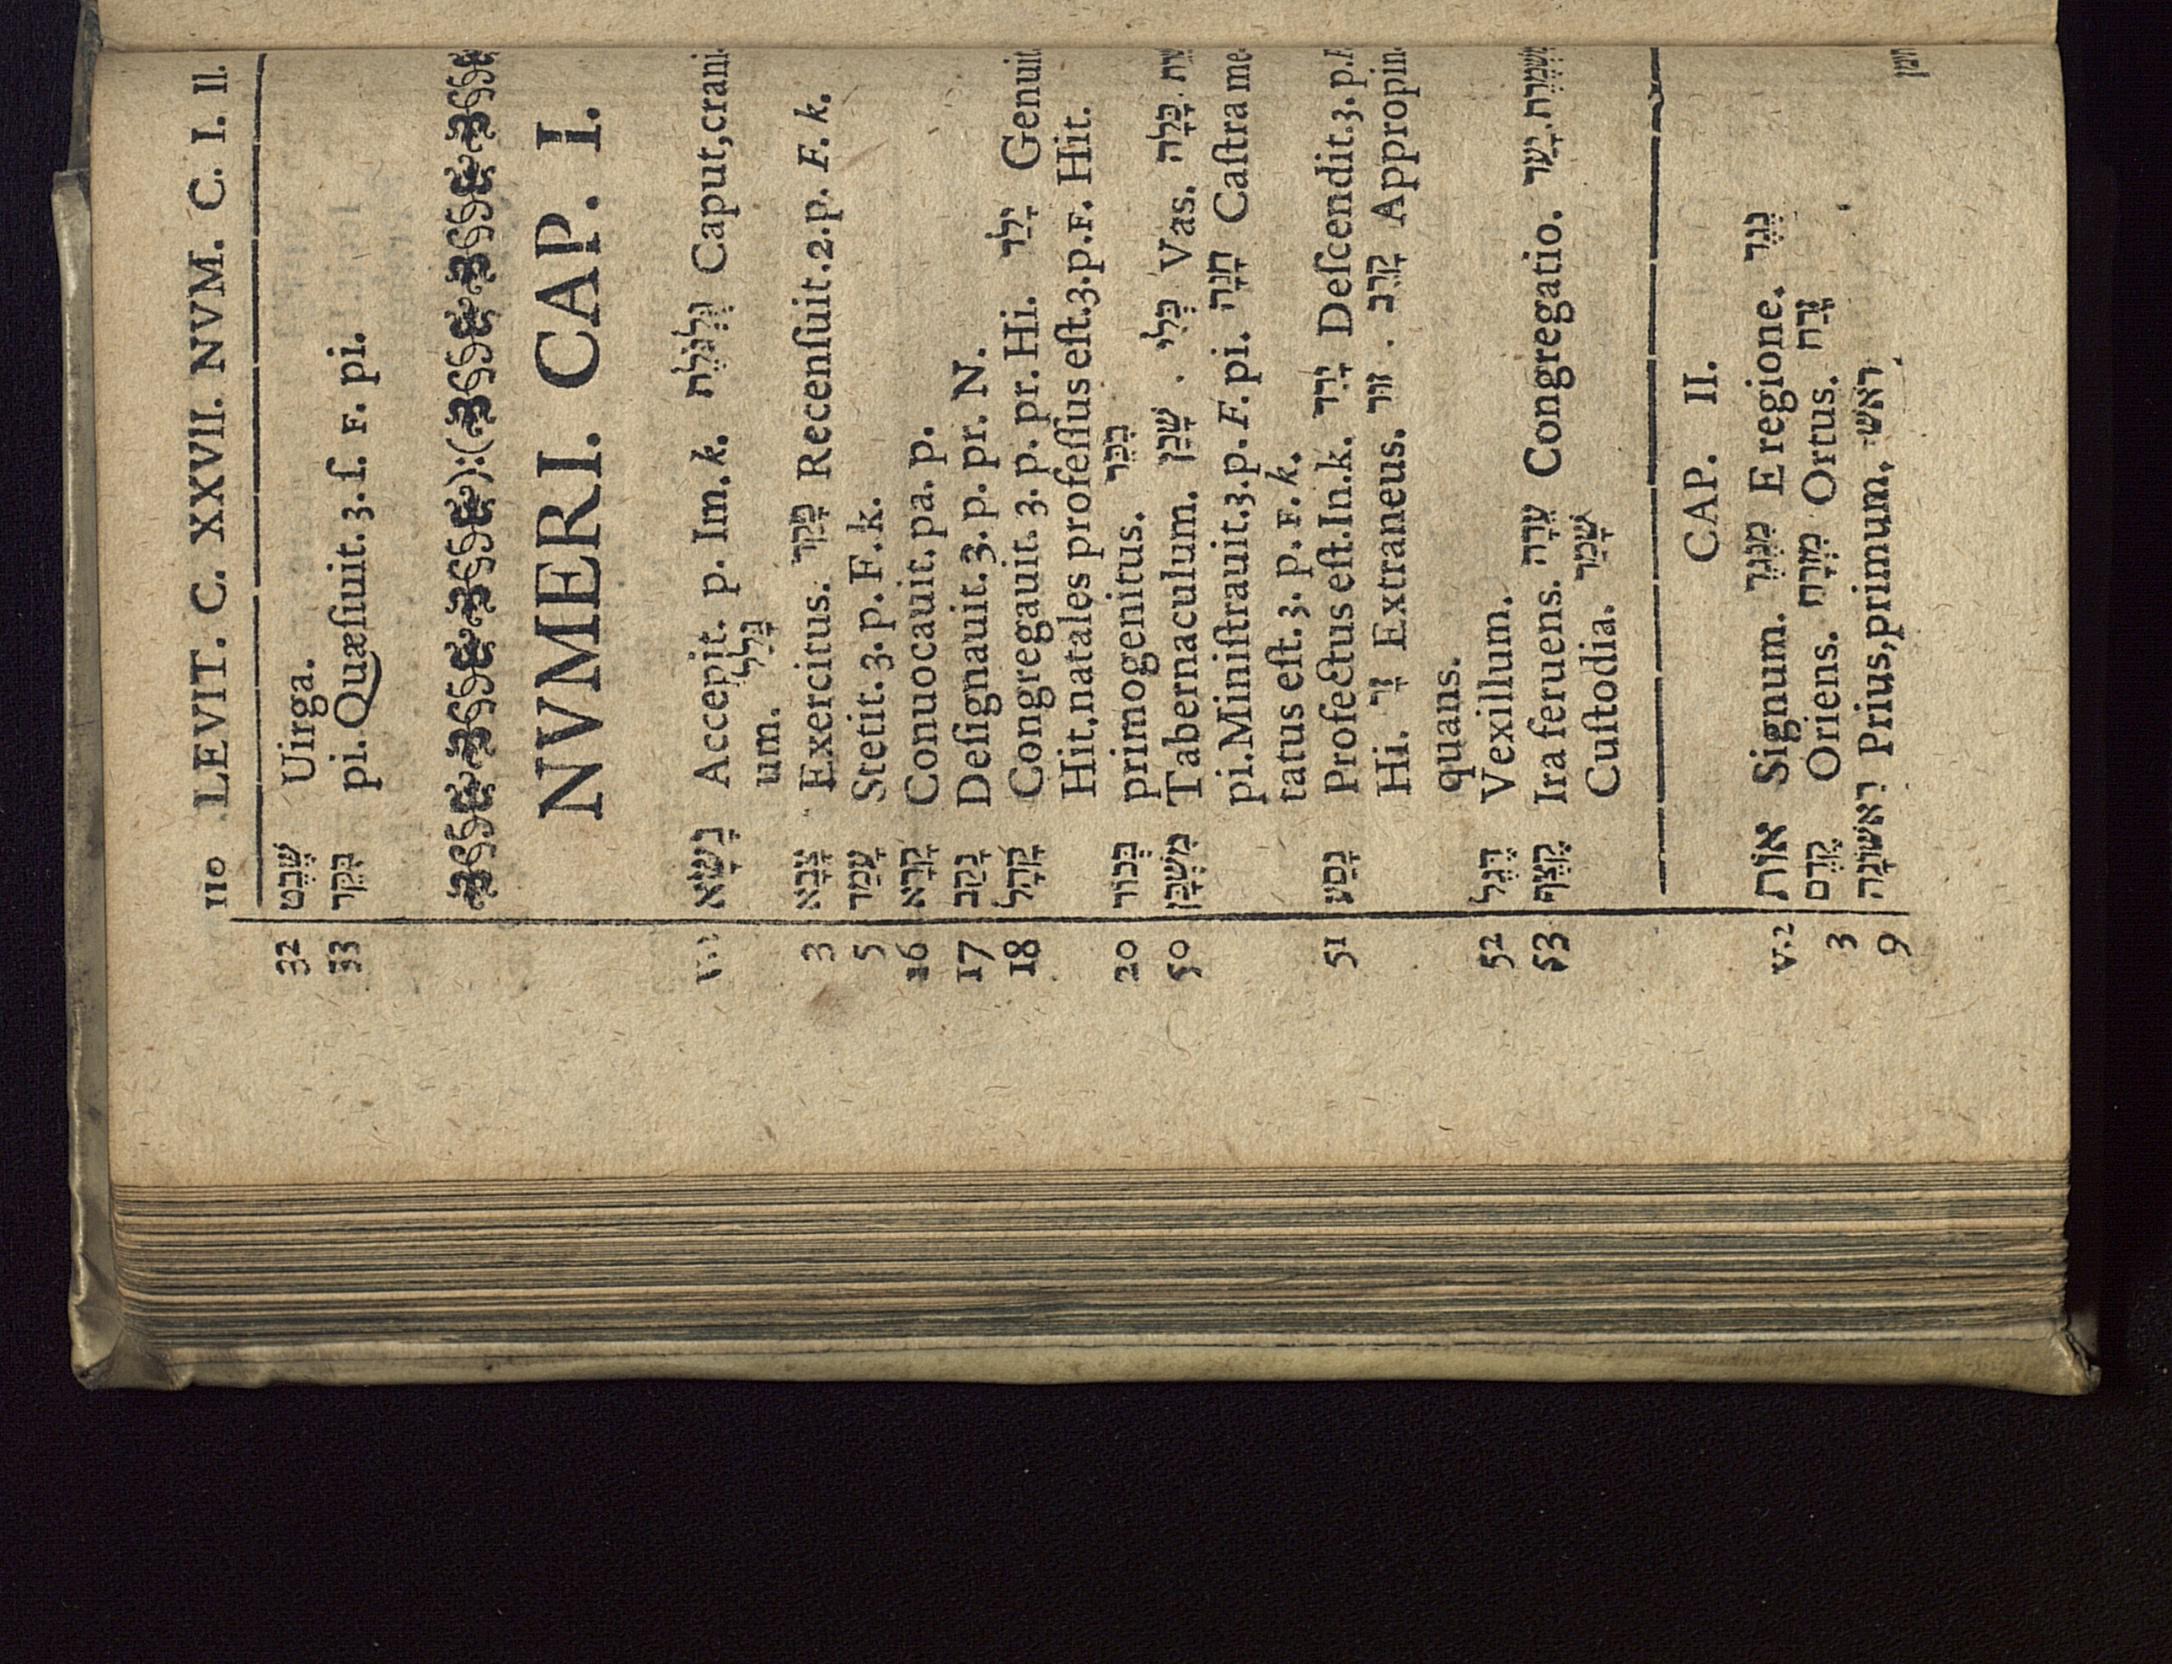 110 LEVIT. C. XXVII. NVM. C. I. II.
32 שֵׁבֶט Uirga.
33 בִּקֵּר pi. Quæſiuit. 3. ſ. F. pi.
):(
NVMERI. CAP. I.
v.1 נָשָׂא Accepit. p. Im. k. גֻּלְגֹּלֶת Caput, crani
um. גָּלַל
3 צָבָא Exercitus. פָּקַד Recenſuit. 2. p. F. k.
5 עָמַד Stetit. 3. p. F. k.
16 קָרָא Conuocauit. pa. p.
17 נָקַב Deſignauit. 3. p. pr. N.
18 קָהָל Congregauit. 3. p. pr. Hi. יָלַד Genuit
Hit. natales profeſſus eſt. 3. p. F. Hit.
20 בְּכוֹר primogenitus. בָּכַר
50 מִשְׁכָּן Tabernaculum. שָׁכַן . כְּלִי Vas. כָּלָה. שֵׁרֵת
pi. Miniſtrauit. 3. p. F. pi. חָנָה Caſtra me
tatus eſt. 3. p. F. k.
51 נָסַע Profectus eſt. In. k. יָרַד Deſcendit. 3. p.
Hi. זָר Extraneus. זוּר . קָרֵב Appropin
quans.
52 דֶּגֶל Vexillum.
53 קֶצֶף Ira feruens. עֵדָה Congregatio. יָעַד. מִשְׁמֶרֶת
Cuſtodia. שָׁמַר
CAP. II.
v.2 אוֹת Signum. מִנֶּגֶד E regione. נֶגֶד
3 קֶדֶם Oriens. מִזְרָח Ortus. זָרַח
9 רִאשׁוֹנָה Prius, primum. ראש